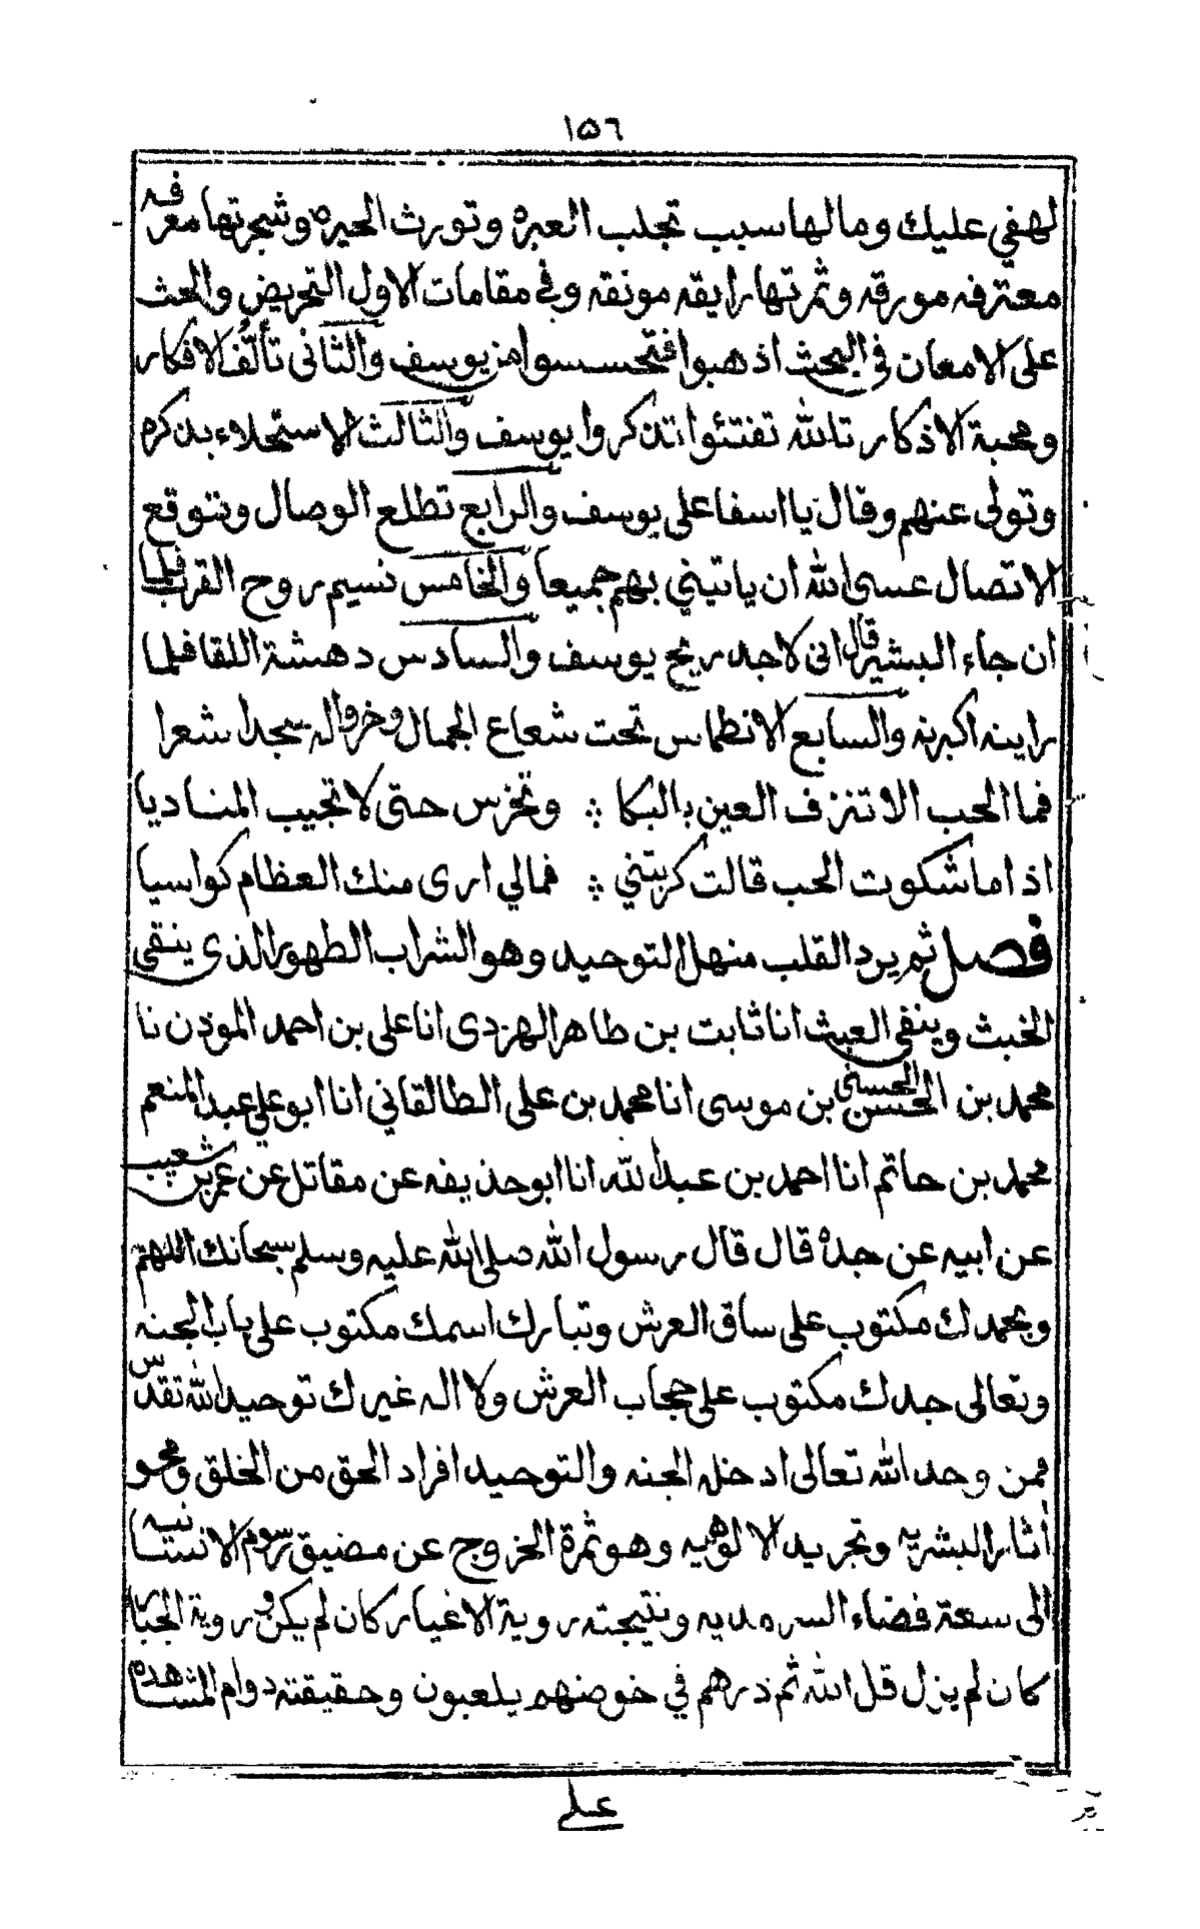 ١٥٦
لهفي عليك ومالها سبب تجلب العبره وتورث الحيره وشجرتها معرفه
معترفه مورقه وثمرتها رايقه مونقه وفي مقامات الاول التحريض والحث
على الامعان في البحث اذهبوا فتحسسوا من يوسف والثاني تألّف الافكار
ومحبة الاذكار تالله تفتئوا تذكروا يوسف والثالث الاستحلاء بذكره
وتولى عنهم وقال يا اسفا على يوسف والرابع تطلع الوصال وتوقع
الاتصال عسى الله ان ياتيني بهم جميعا والخامس نسيم روح القرب فلما
ان جاء البشير قال اني لاجد ريح يوسف والسادس دهشة اللقا فلما
راينه اكبرنه والسابع الانطماس تحت شعاع الجمال وخروا له سجدا شعرا
فما الحب الا تنزف العين بالبكا ؞ وتخرس حتى لا تجيب المناديا
اذا ما شكوت الحب قالت كربتني ؞ فمالي ارى منك العظام كواسيا
فصل ثم يرد القلب منهل التوحيد وهو الشراب الطهور الذي ينقي
الخبث وينفي العبث انا ثابت بن طاهر الهزدى انا على بن احمد الموذن نا
محمد بن الحسن الحسني بن موسى انا محمد بن على الطالقاني انا ابو علي عبد المنعم
محمد بن حاتم انا احمد بن عبد الله انا ابو حذيفه عن مقاتل عن عمر بن شعيب
عن ابيه عن جده قال قال رسول الله صلى الله عليه وسلم سبحانك اللهم
وبحمدك مكتوب على ساق العرش وتبارك اسمك مكتوب على باب الجنه
وتعالى جدك مكتوب على حجاب العرش ولا اله غيرك توحيد الله تقدّس
فمن وحد الله تعالى ادخله الجنه والتوحيد افراد الحق من الخلق ومحو
أثار البشريه وتجريد الالوهيه وهو ثمرة الخروج عن مضيق رسوم الانسانيه
الى سعة فضاء السرمديه ونتيجته روية الاغيار كان لم يكن وروية الجبار
كان لم يزل قل الله ثم ذرهم في خوضهم يلعبون وحقيقته دوام المشاهده
على